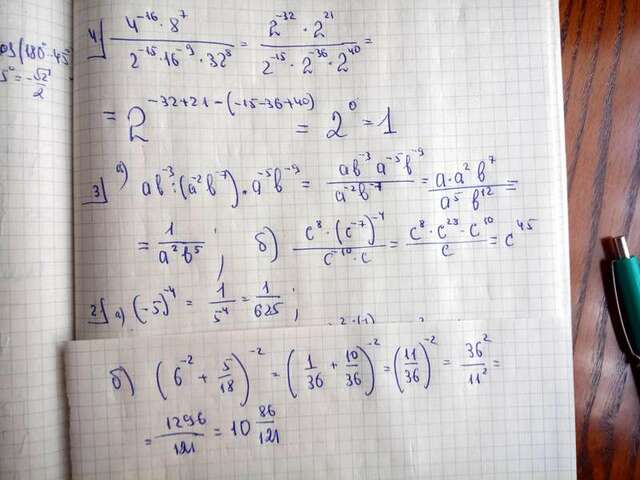 4) 4^-16 · 8^7 / 2^-15 · 16^-9 · 32^8 = 2^-32 · 2^21 / 2^-15 · 2^-36 · 2^40 =
= 2^-32+21-(-15-36+40) = 2^0 = 1
3) а) ab^-3 : (a^-2 b^-7) · a^-5 b^-9 = ab^-3 a^-5 b^-9 / a^-2 b^-7 = a · a^2 b^7 / a^5 b^12 =
= 1 / a^2 b^5 ; б) c^8 · (c^-7)^-4 / c^-10 · c = c^8 · c^28 · c^10 / c = c^45
2) а) (-5)^-4 = 1 / 5^4 = 1 / 625 ;
б) (6^-2 + 5/18)^-2 = (1/36 + 10/36)^-2 = (11/36)^-2 = 36^2 / 11^2 =
= 1296 / 121 = 10 86/121